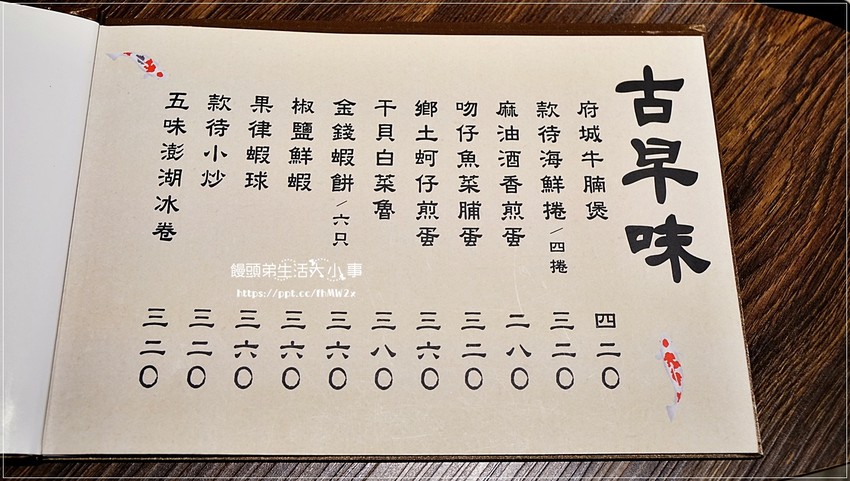 古早味
府城牛腩煲 四二〇
款待海鮮捲/四捲 三二〇
麻油酒香煎蛋 二八〇
吻仔魚菜脯蛋 三二〇
鄉土蚵仔煎蛋 三六〇
干貝白菜魯 三八〇
金錢蝦餅/六只 三六〇
椒鹽鮮蝦 三六〇
果律蝦球 三六〇
款待小炒 三二〇
五味澎湖冰卷 三二〇
饅頭弟生活大小事
https://ppt.cc/fhMW2x